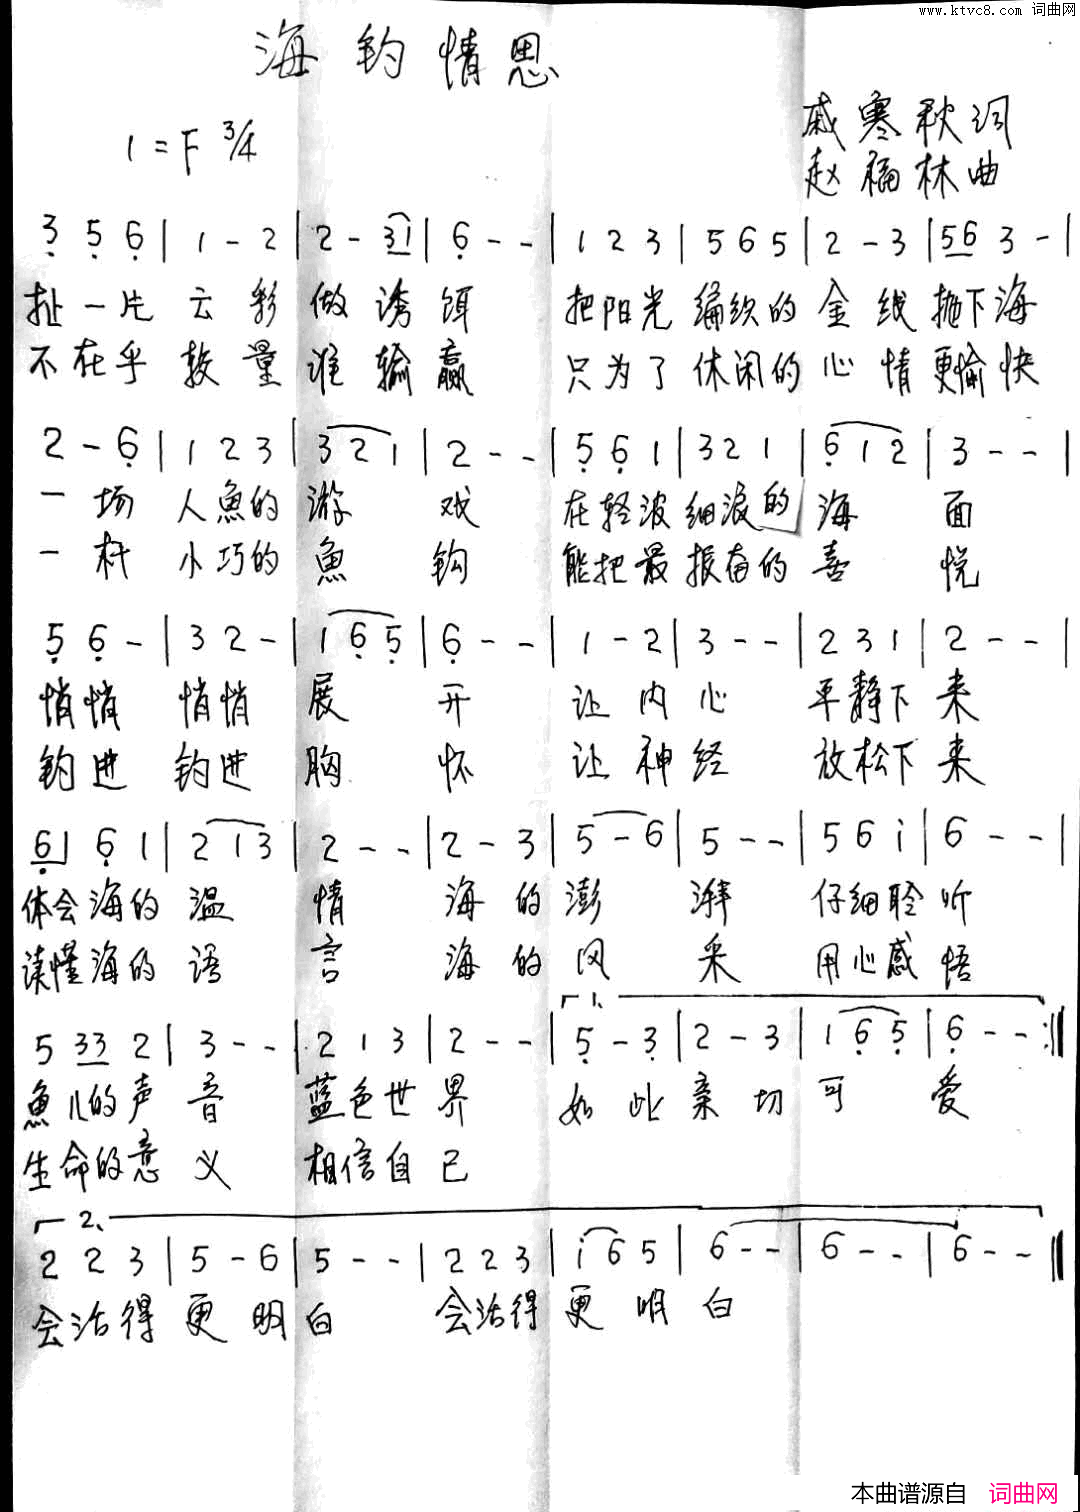 www.ktvc8.com 词曲网
海钓情思
戚寒秋词
1=F 3/4
赵福林曲
3 5 6 | 1 - 2 | 2 - 31 | 6 - - | 1 2 3 | 5 6 5 | 2 - 3 | 56 3 - |
扯一片 云彩 做诱饵 把阳光 编织的 金线 抛下海
不在乎 数量 谁输赢 只为了 休闲的 心情 更愉快
2 - 6 | 1 2 3 | 3 2 1 | 2 - - | 5 6 1 | 3 2 1 | 6 1 2 | 3 - - |
一场 人魚的 游戏 在轻波 细浪的 海面
一杆 小巧的 魚钩 能把最 振奋的 喜悦
5 6 - | 3 2 - | 1 6 5 | 6 - - | 1 - 2 | 3 - - | 2 3 1 | 2 - - |
悄悄 悄悄 展开 让内心 平静下来
钓进 钓进 胸怀 让神经 放松下来
61 6 1 | 2 1 3 | 2 - - | 2 - 3 | 5 - 6 | 5 - - | 5 6 i | 6 - - |
体会海的 温情 海的 澎湃 仔细聆听
读懂海的 语言 海的 风采 用心感悟
1.
5 33 2 | 3 - - | 2 1 3 | 2 - - | 5 - 3 | 2 - 3 | 1 6 5 | 6 - - :||
魚儿的声音 蓝色世界 如此亲切可爱
生命的意义 相信自己
2.
2 2 3 | 5 - 6 | 5 - - | 2 2 3 | i 6 5 | 6 - - | 6 - - | 6 - - ||
会活得 更明白 会活得 更明白
本曲谱源自 词曲网